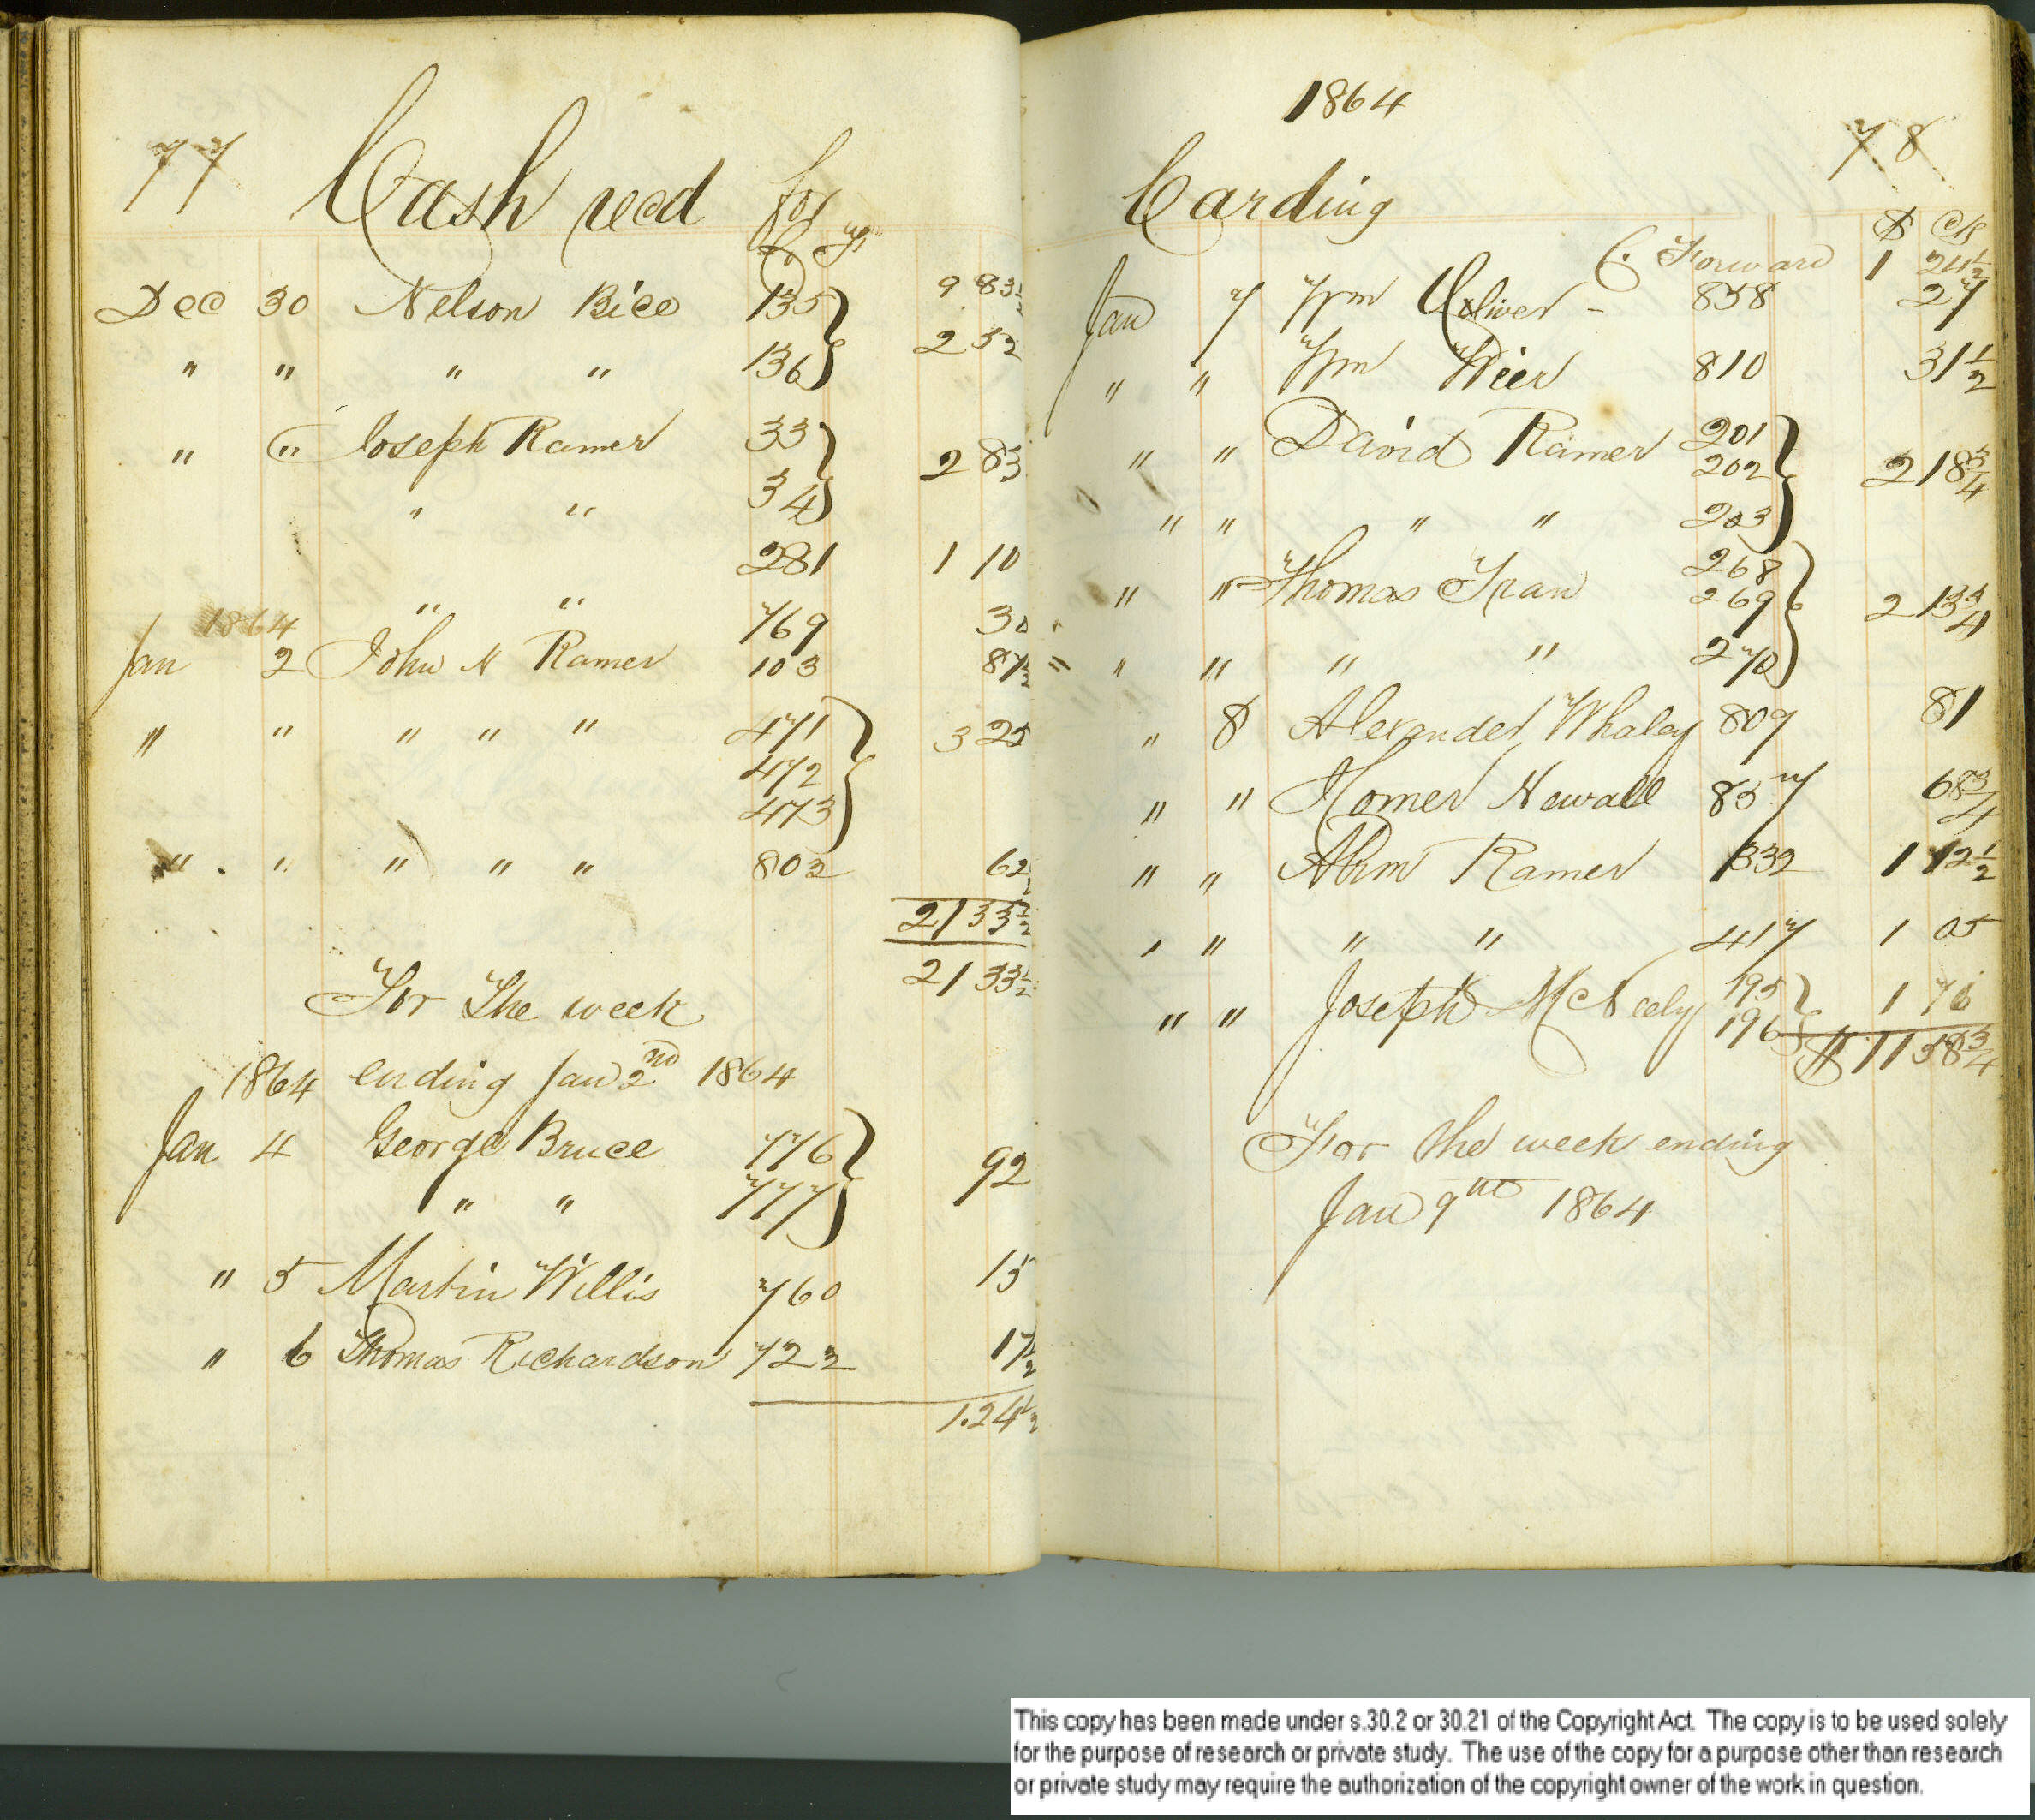 77 Cash recd for
C. F.
Dec 30 Nelson Bice 135 9 83½
" " " " 136 2 52
" " Joseph Ramer 33 2 83
" " 34
281 1 10
" " 769 30
1864
Jan 2 John N Ramer 103 87½
" " " " " 471 3 25
472
473
" " " " " 803 62
21 33½
21 33½
For the week
ending Jan 2nd 1864
1864
Jan 4 George Bruce 776 92
" " 777
" 5 Martin Willis 760 15
" 6 Thomas Richardson 722 17½
1.24½
1864
78
Carding
$ cts
C. Forward 1 24½
Jan 7 Wm Oliver - 858 27
" " Wm Wier 810 31½
" " David Ramer 201
202 2 18¾
" " " " 203
" " Thomas Fran 268
269 2 13¾
" " " " 270
" 8 Alexander Whaley 809 81
" " Homer Newall 857 68¾
" " Abm Ramer 332 1 12½
" " " " 417 1 05
" " Joseph McNeely 195 1 76
196
$ 11 58¾
For the week ending
Jan 9th 1864
This copy has been made under s.30.2 or 30.21 of the Copyright Act. The copy is to be used solely
for the purpose of research or private study. The use of the copy for a purpose other than research
or private study may require the authorization of the copyright owner of the work in question.